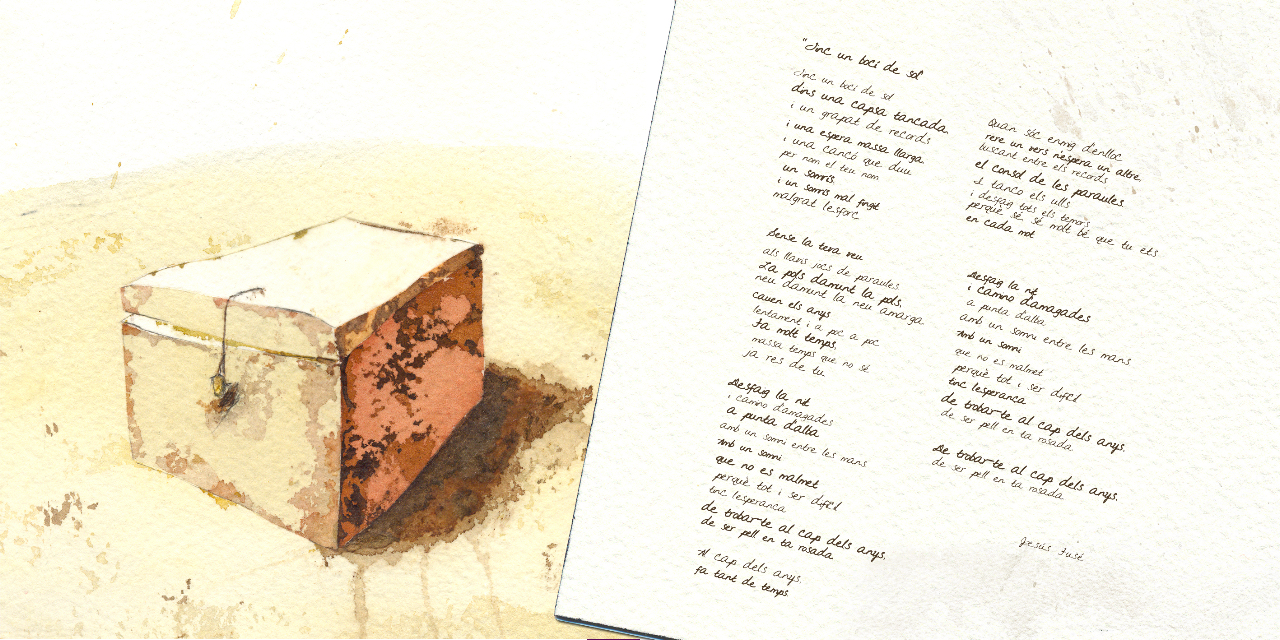 "Tinc un boci de sol
Tinc un boci de sol
dins una capsa tancada.
i un grapat de records
i una espera massa llarga.
i una cançó que duu
per nom el teu nom
un somris.
i un somris mal fingit
malgrat lesforç
Sense la teva veu
als llavis jocs de paraules
La pols damunt la pols.
neu damunt la neu amarga.
cauen els anys
lentament i a poc a poc
fa molt temps.
massa temps que no sé
ja res de tu.
Desfaig la nit
i camino d'amagades
a punta d'alba
amb un somni entre les mans
Amb un somni
que no es malmet
perquè tot i ser difícil
tinc lesperança
de trobar-te al cap dels anys.
de ser pell en ta rosada
Al cap dels anys.
fa tant de temps.
Quan sóc enmig d'enlloc
rere un vers n'espera un altre.
buscant entre els records
el consol de les paraules
si tanco els ulls
i desfaig tots els temors
perquè sé. sé molt bé que tu ets
en cada mot
Desfaig la nit
i camino d'amagades
a punta d'alba
amb un somni entre les mans
Amb un somni
que no es malmet
perquè tot i ser difícil
tinc lesperança
de trobar-te al cap dels anys.
de ser pell en ta rosada
De trobar-te al cap dels anys.
de ser pell en ta rosada
Jesús Fusté